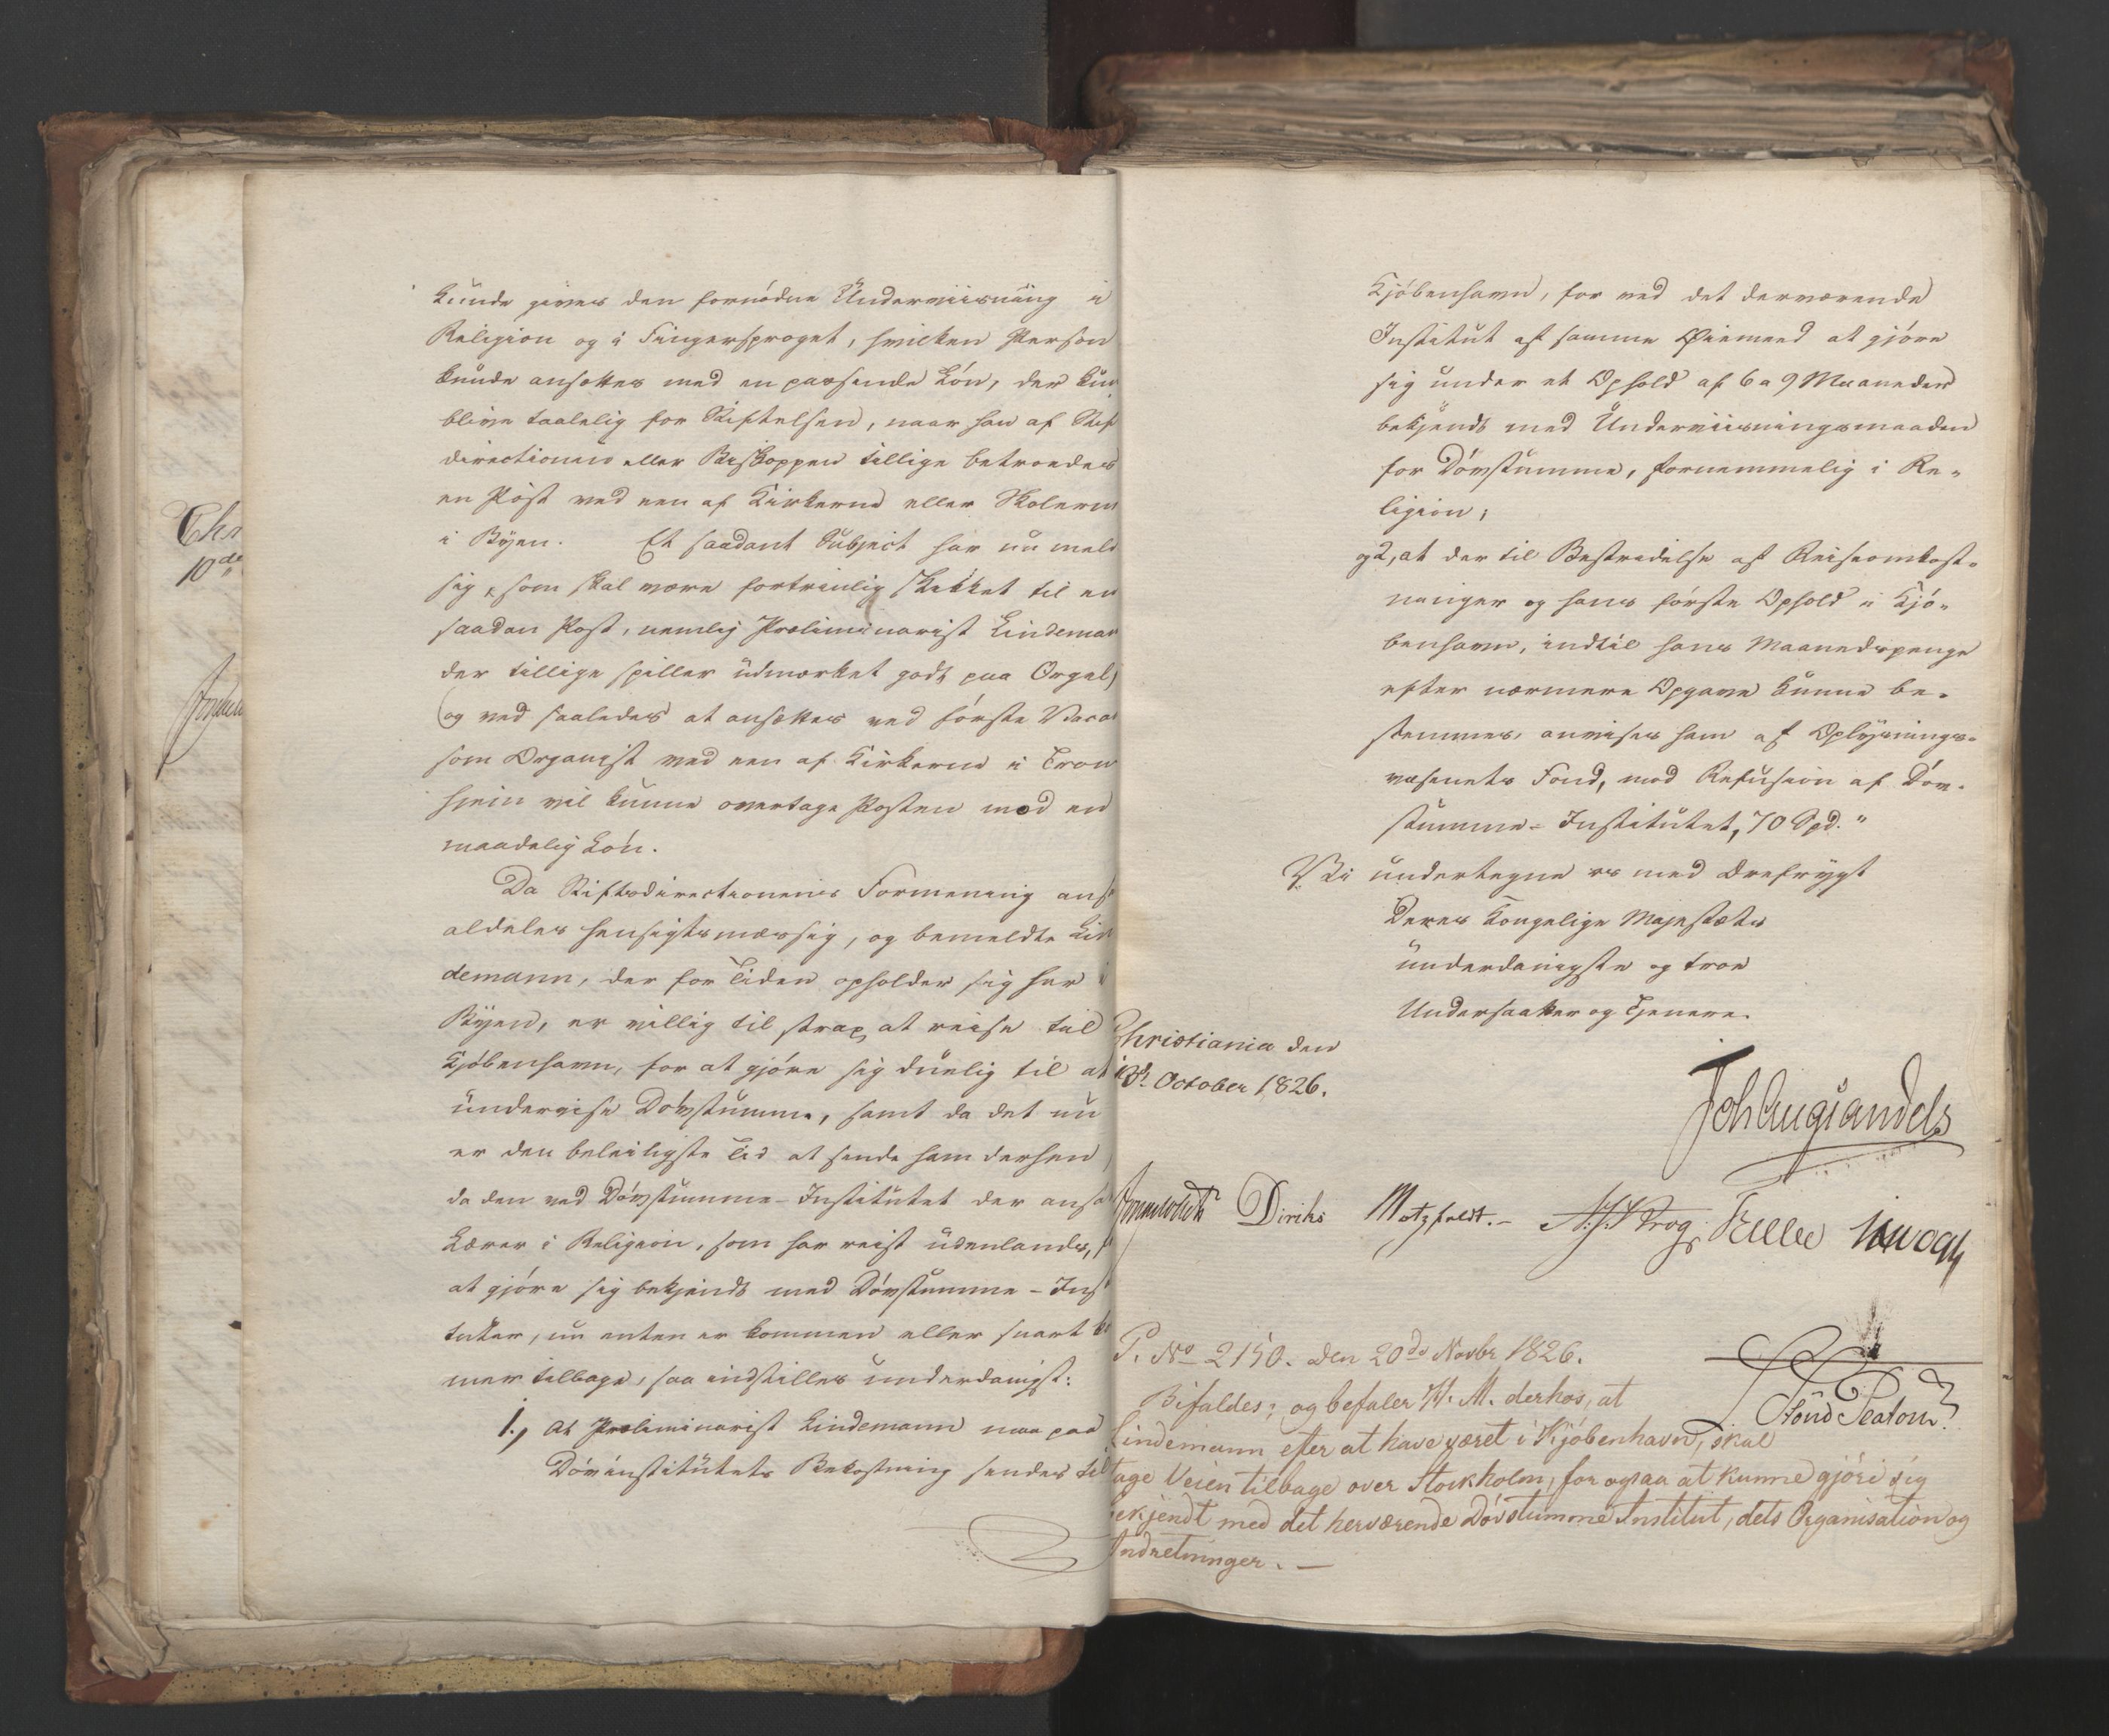 Chr
10de
kunde gives den fornødne Underviisning i
Religion og i Fingersproget, hvilken Person
kunde ansættes med en passende Løn, der kun
blive taalelig for Stiftelsen, naar han af Stif
directionen eller Biskoppen tillige betroedes
en Post ved een af Kirkerne eller Skolerne
i Byen. Et saadant Subject har nu meld
sig, som skal være fortrinlig skikket til en
saadan Post, nemlig Præliminarist Lindeman
der tillige spiller udmærket godt paa Orgel,
og ved saaledes at ansættes ved første Vaca
som Organist ved een af Kirkerne i Tron
hjem vil kunne overtage Posten mod en
maadelig Løn.
Da Stiftsdirectionens Formening ans
aldeles hensigtsmæssig, og bemeldte Lin
demann, der for Tiden opholder sig her i
Byen, er villig til strax at reise til
Kjøbenhavn, for at gjøre sig duelig til at
undervise Døvstumme, samt da det nu
er den beleiligste Tid at sende ham derhen,
da den ved Døvstumme-Institutet der ansa
Lærer i Religion, som har reist udenlands, f
at gjøre sig bekjendt med Døvstumme-Inst
tuter, nu enten er kommen eller snart ko
mer tilbage, saa indstilles underdanigst:
1., At Præliminarist Lindemann maa paa
Døvinstitutets Bekostning sendes til
Kjøbenhavn, for ved det derværende
Institut af samme Øiemeed at gjøre
sig under et Ophold af 6 a 9 Maaneder
bekjendt med Underviisningsmaaden
for Døvstumme, fornemmelig i Re-
ligion;
og 2, at der til Bestridelse af Reiseomkost-
ninger og hans første Ophold i Kjø-
benhavn, indtil hans Maanedspenge
efter nærmere Opgave kunne be-
stemmes, anvises ham af Oplysnings-
væsenets Fond, mod Refusion af Døv-
stumme-Institutet, 70 Spd."
Vi undertegne os med Ærefrygt
Deres Kongelige Majestæts
underdanigste og troe
Undersaatter og Tjenere.
Christiania den
13de October 1826.
Joh Aug Sandels
Sommerhielm Diriks Motzfeldt.- A.S. Krog Fasting
P. No 2150. den 20de Novbr 1826.
Bifaldes; og befaler H. M. derhos, at
Lindemann efter at have været i Kjøbenhavn, skal
tage Veien tilbage over Stockholm, for ogsaa at kunne gjøre sig
bekjendt med det herværende Døvstumme Institut, dets Organisation og
Indretninger. —